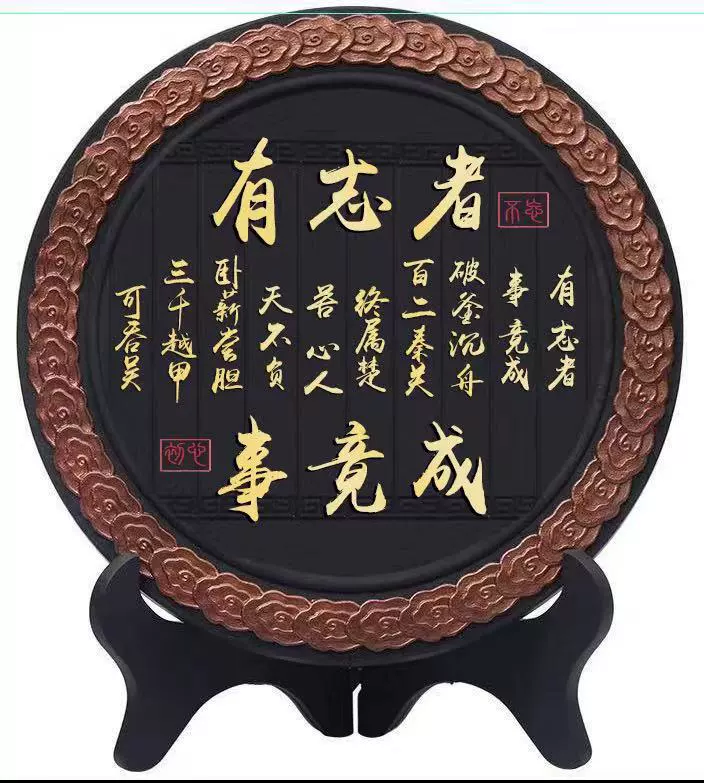 有志者
不忘
有志者
事竟成
破釜沉舟
百二秦关
终属楚
苦心人
天不负
卧薪尝胆
三千越甲
可吞吴
初心
事竟成